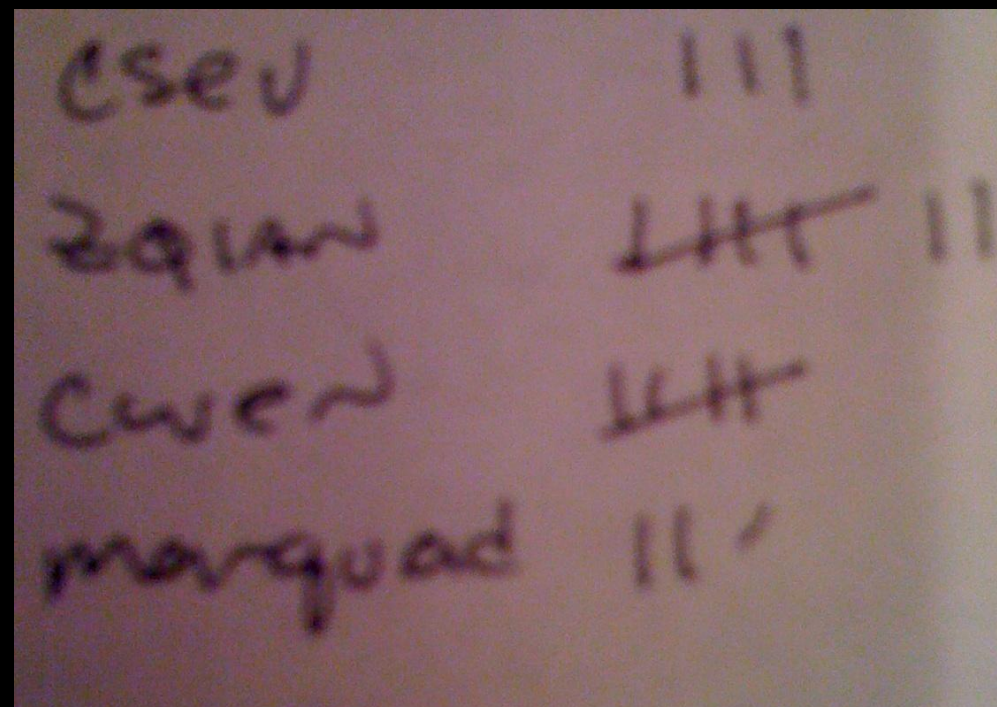 csev III
zqian IIII II
cwen IIII
marquad II